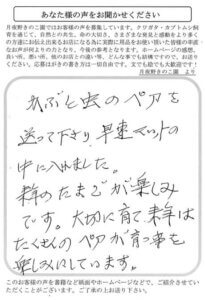 あなた様の声をお聞かせください
月夜野きのこ園ではお客様の声を募集しています。クワガタ・カブトムシ飼
育を通じて、自然との共生、命の大切さ、さまざまな発見と感動をより多く
の方達にお伝え出来るお店になる為に実際に用品をお使い頂いた皆様の率直
なお声が何よりの力となり、今後の参考となります。ホームページの感想、
良い所、悪い所、他のお店との違い等、どんな事でも結構ですので、お送り
ください。応募はがきの書き方は一切自由です。文でも絵でも大歓迎です！
月夜野きのこ園 より
かぶと虫のペアを
送って下さり 早速マットの
中に入れました。
来年のたまごが楽しみ
です。大切に育て来年は
たくさんのペアが育つ事を
楽しみにしています。
このお客様の声を書籍など紙面やホームページなどで、ご紹介させてい
ただくことがございます。ご了承の上お送り下さい。